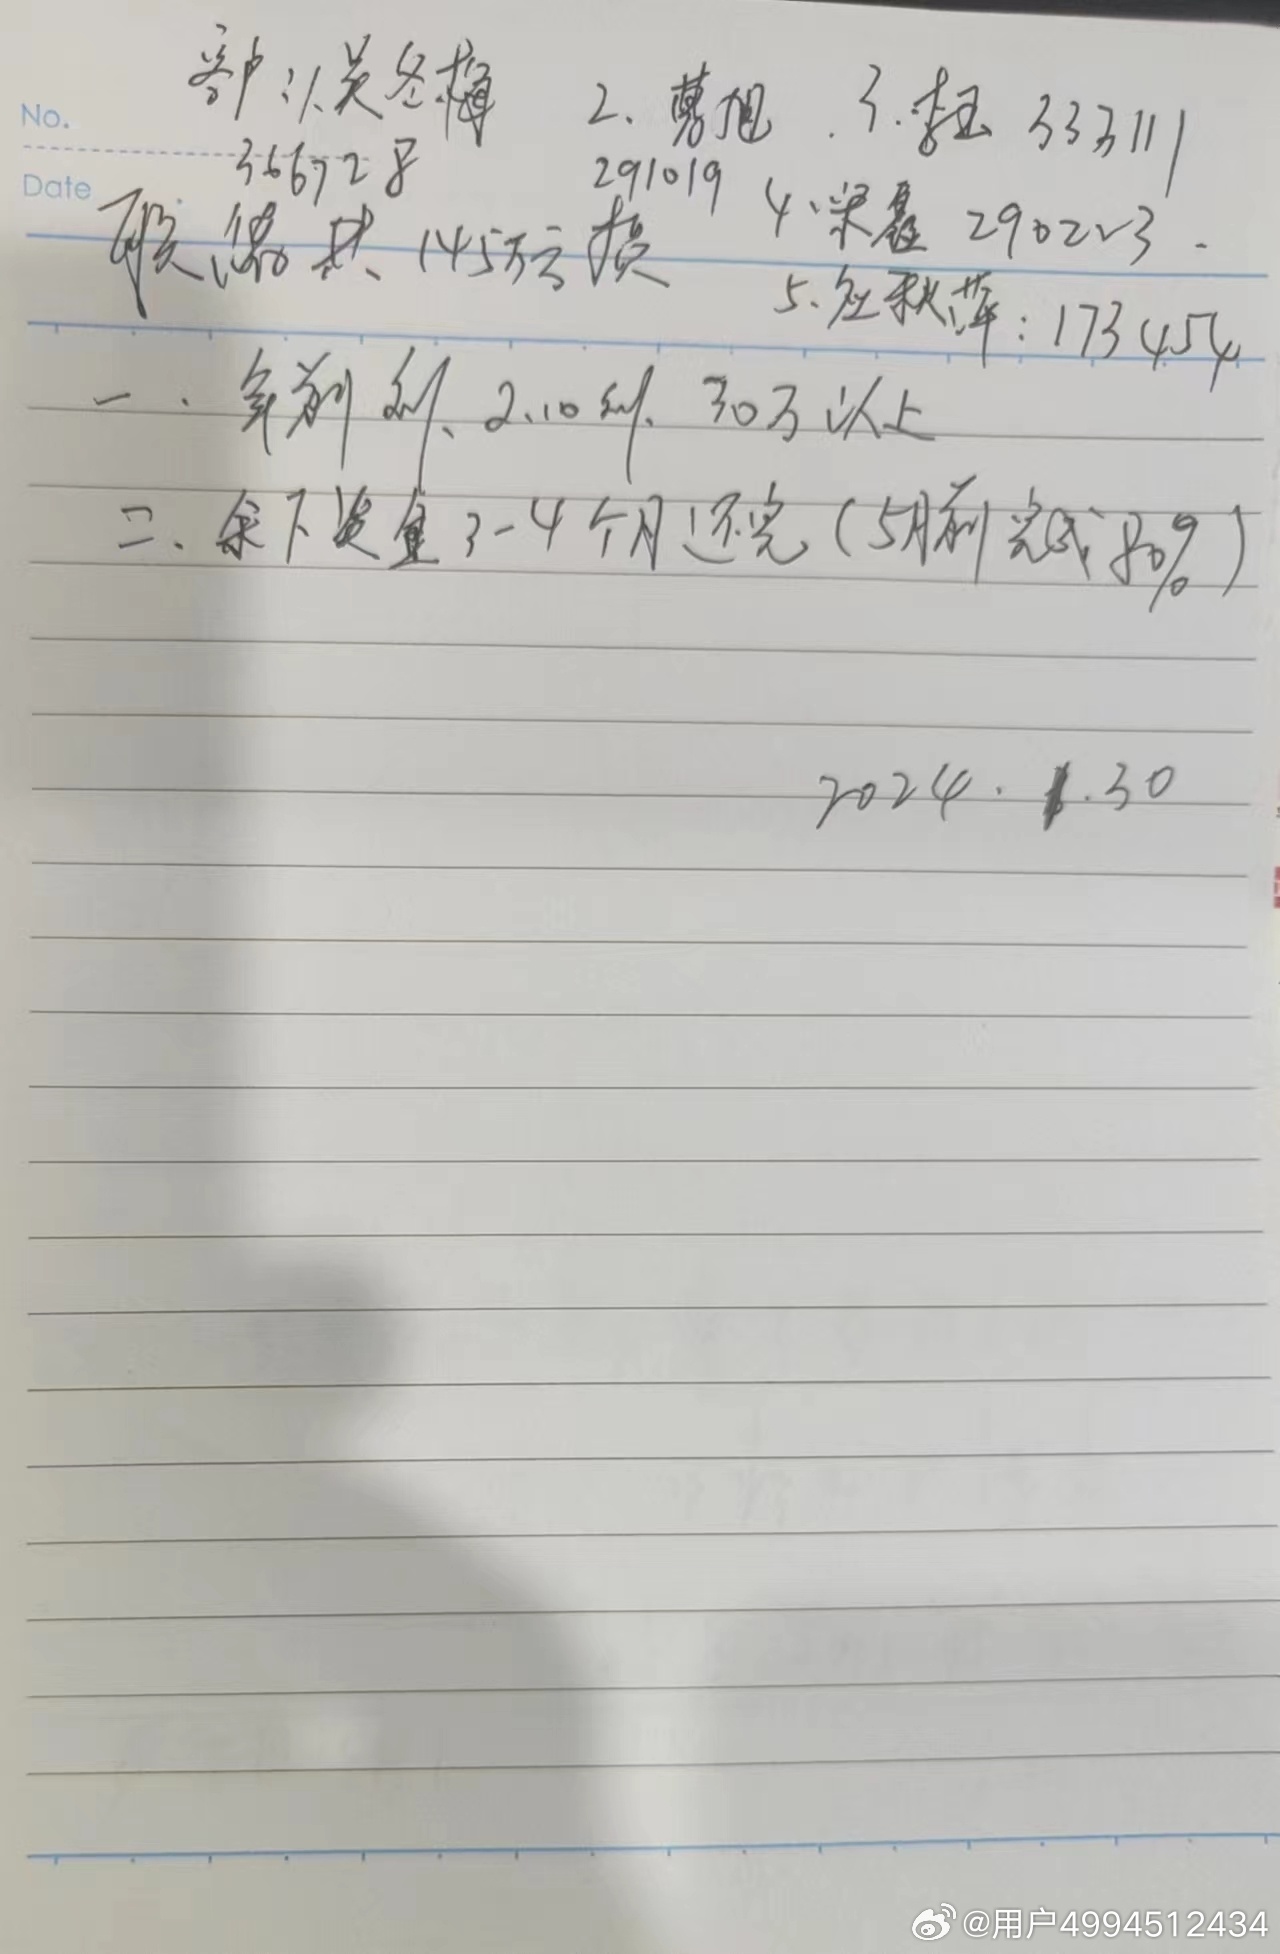 客户:1.吴冬梅 2.曹旭 3.李玉 333111
No. 366728 291019 4.梁鑫 290223.
Date 145万元 损 5.任秋萍:173454
一. 年前到、2.10到、30万以上
二. 余下资金3-4个月还完(5月前完成80%)
2024.1.30
@用户4994512434